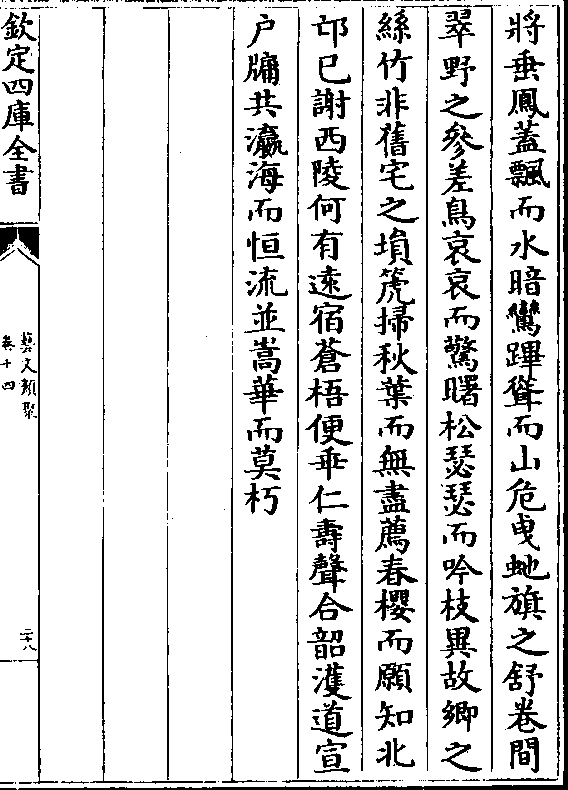 將垂鳳葢飄而水暗鸞蹕聳而山危曵虵旗之舒卷間
翠野之參差鳥哀哀而驚曙松瑟瑟而吟枝異故鄉之
絲竹非舊宅之塤箎掃秋葉而無盡薦春櫻而願知北
邙已謝西陵何有逺宿蒼梧便乖仁夀聲合韶濩道宣
户牖共瀛海而恒流並嵩華而莫朽
欽定四庫全書
藝文類聚
卷十四
二十八